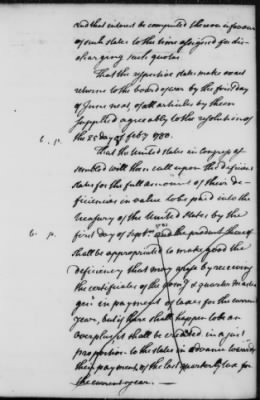 and that interest be computed thereon in favour
of such states to the time assigned for dis-
charging such quotas
That the respective states make exact
returns to the board of war by the first day
of June next, of all articles by them
supplied agreeably to the resolution of
the 25 day of feby 1780.
That the United States in Congress as
sembled will then call upon the deficient
states for the full amount of their de-
ficiencies in value to be paid into the
treasury of the United States by the
first day of Septr and the product thereof
shall be appropriated to make good the
deficiency that may arise by receiving
the certificates of the comy & quarter master
genl in payment of taxes for the current
year, but if there shall happen to be an
overplus it shall be credited in a just
proportion to the states in advance towards
their payment of the last quarterly tax for
the current year.